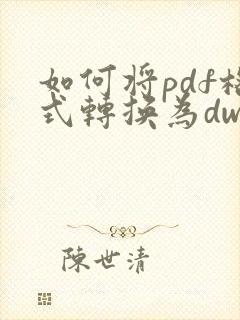 如何将pdf格
式轉換為dw
陳世清